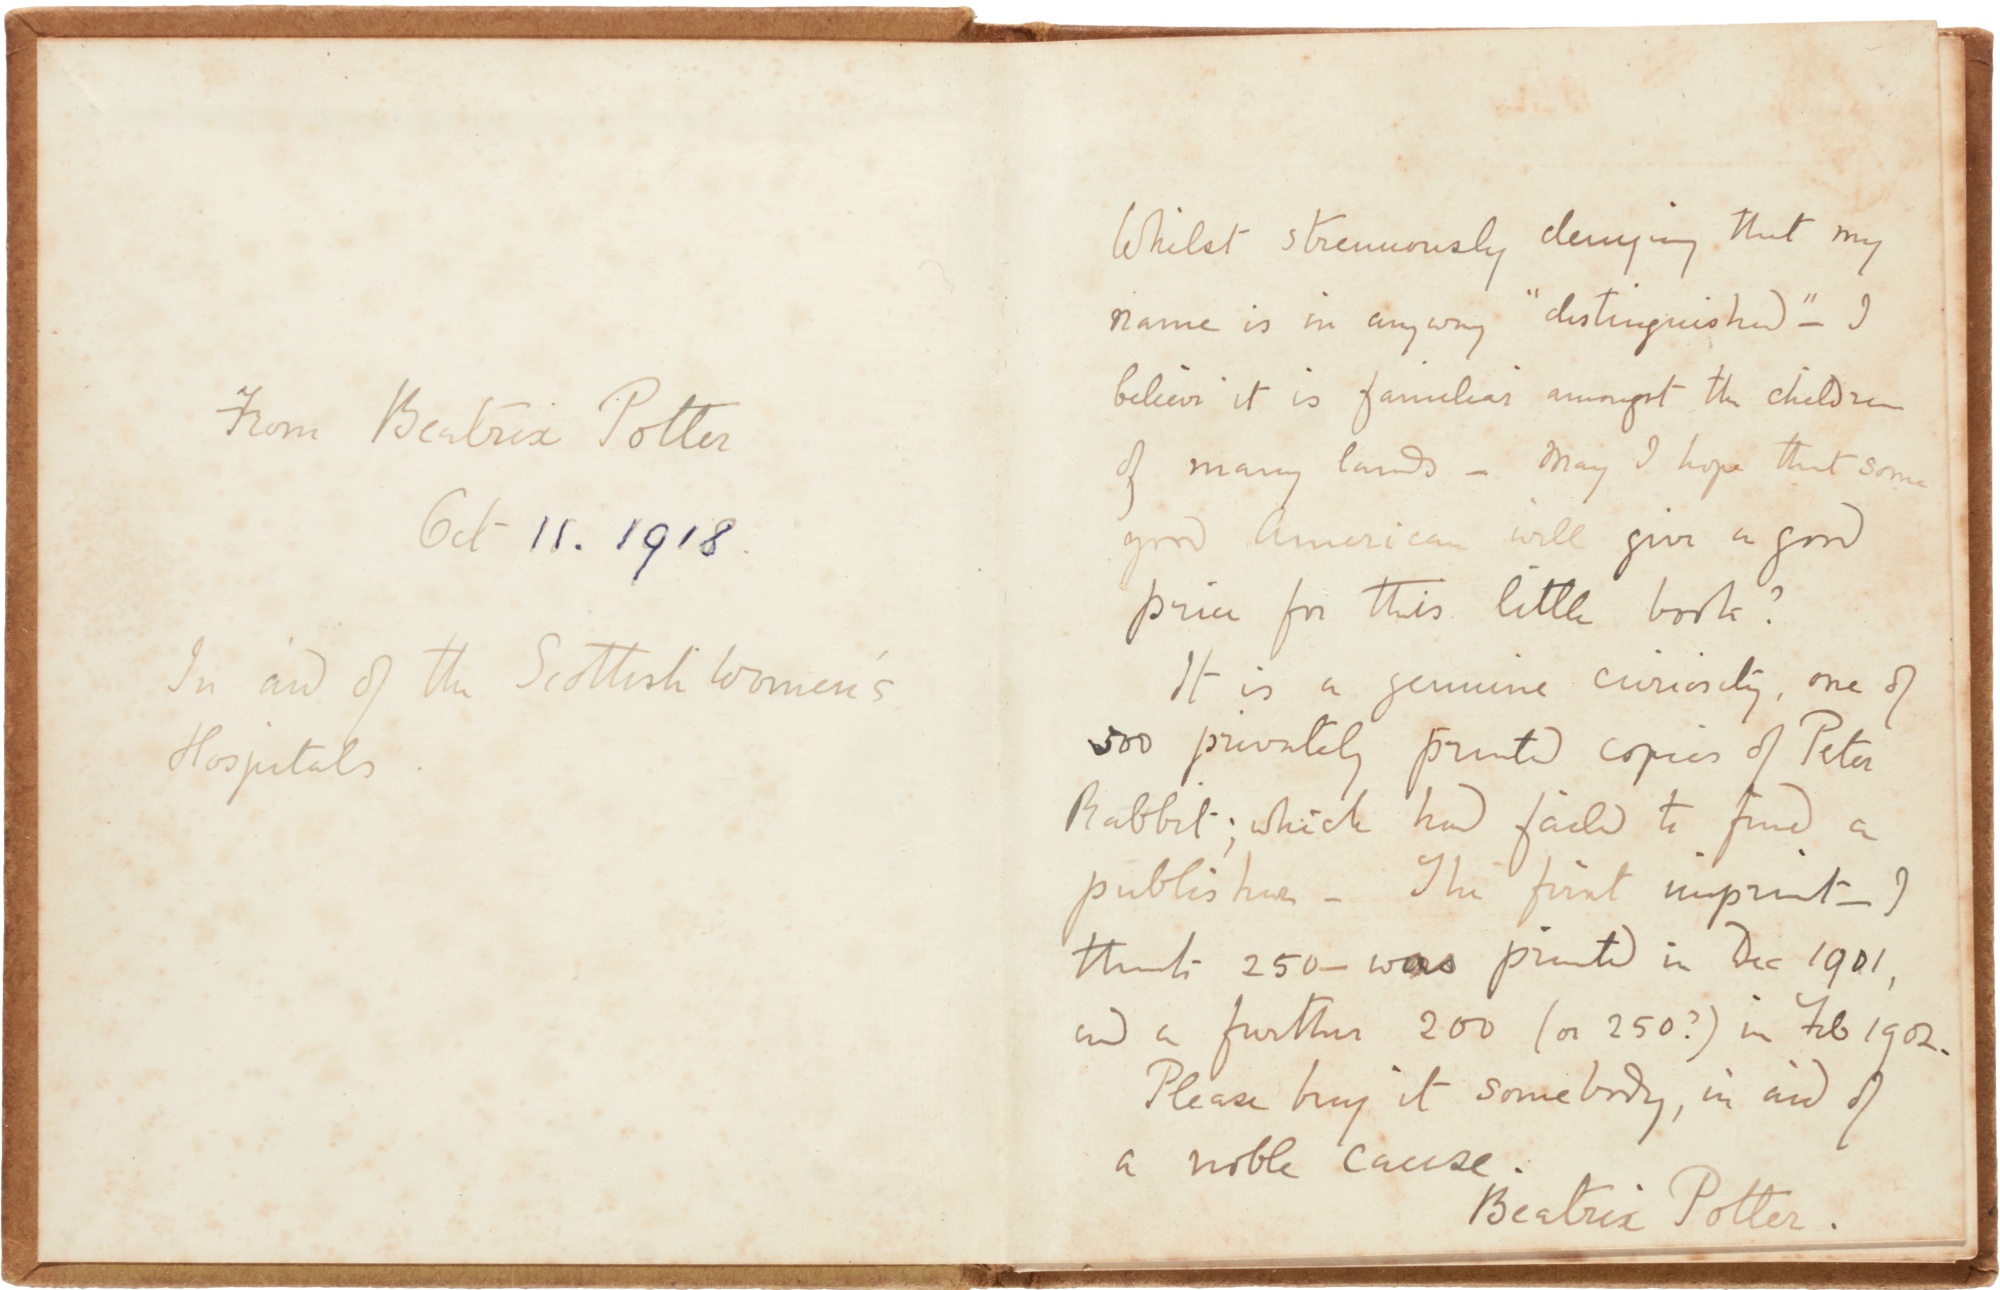 From Beatrix Potter
Oct 11. 1918.
In aid of the Scottish Women's
Hospitals.
Whilst strenuously denying that my
name is in anyway "distinguished" – I
believe it is familiar amongst the children
of many lands – May I hope that some
good American will give a good
price for this little book?
It is a genuine curiosity, one of
500 privately printed copies of Peter
Rabbit; which had failed to find a
publisher – The first imprint – I
think 250 – was printed in Dec 1901,
and a further 200 (or 250?) in Feb 1902.
Please buy it somebody, in aid of
a noble cause.
Beatrix Potter.